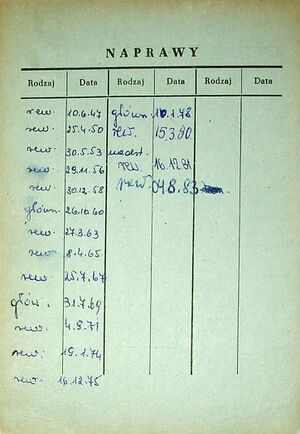 NAPRAWY
Rodzaj Data Rodzaj Data Rodzaj Data
rew. 10.6.47 główn. 10.1.78
rew. 25.4.50 rew. 15.3.80
rew. 30.5.53
rew. 29.11.56 rew. 16.12.81
rew. 30.12.58 rew. 8.83
główn. 26.10.60
rew. 27.3.63
rew. 8.4.65
rew. 25.7.67
główn. 31.7.69
rew. 4.9.71
rew. 19.1.74
rew. 16.12.75